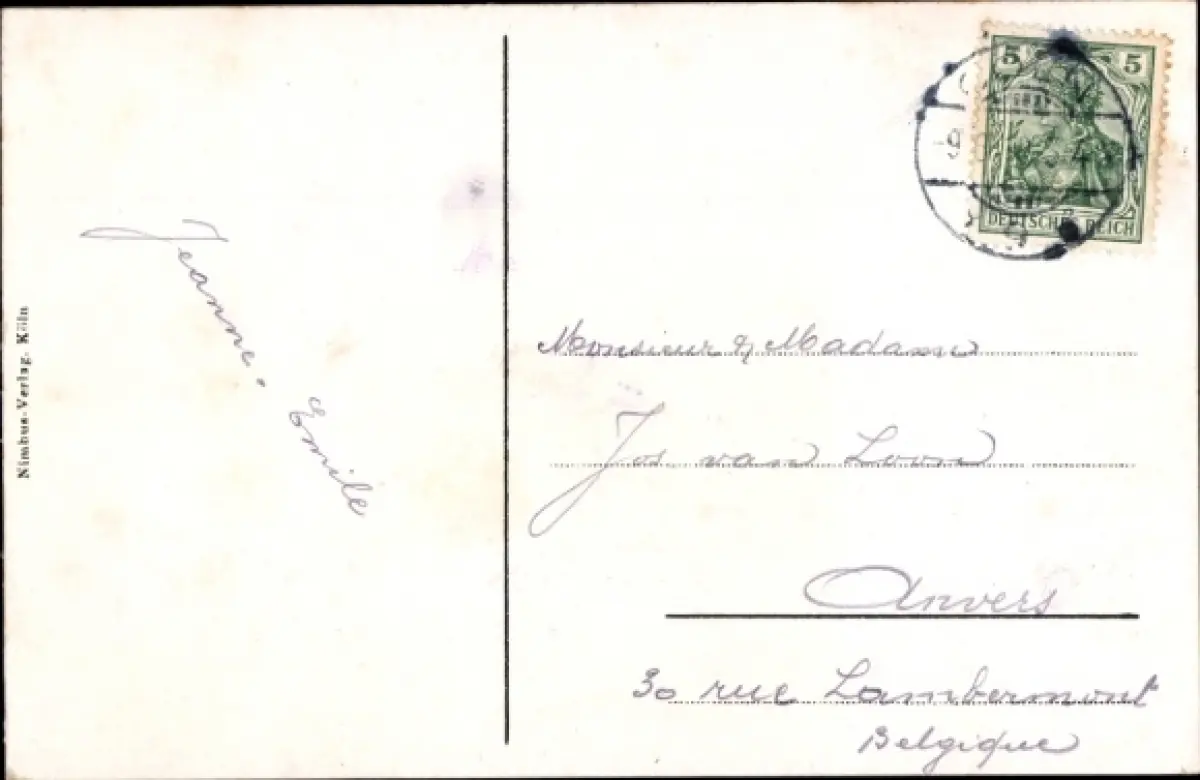 5 5
DEUTSCHES REICH
Nimbus-Verlag, Köln
Jeanne. Emile
Monsieur & Madame
Jos van Loon
Anvers
30 rue Lambermont
Belgique